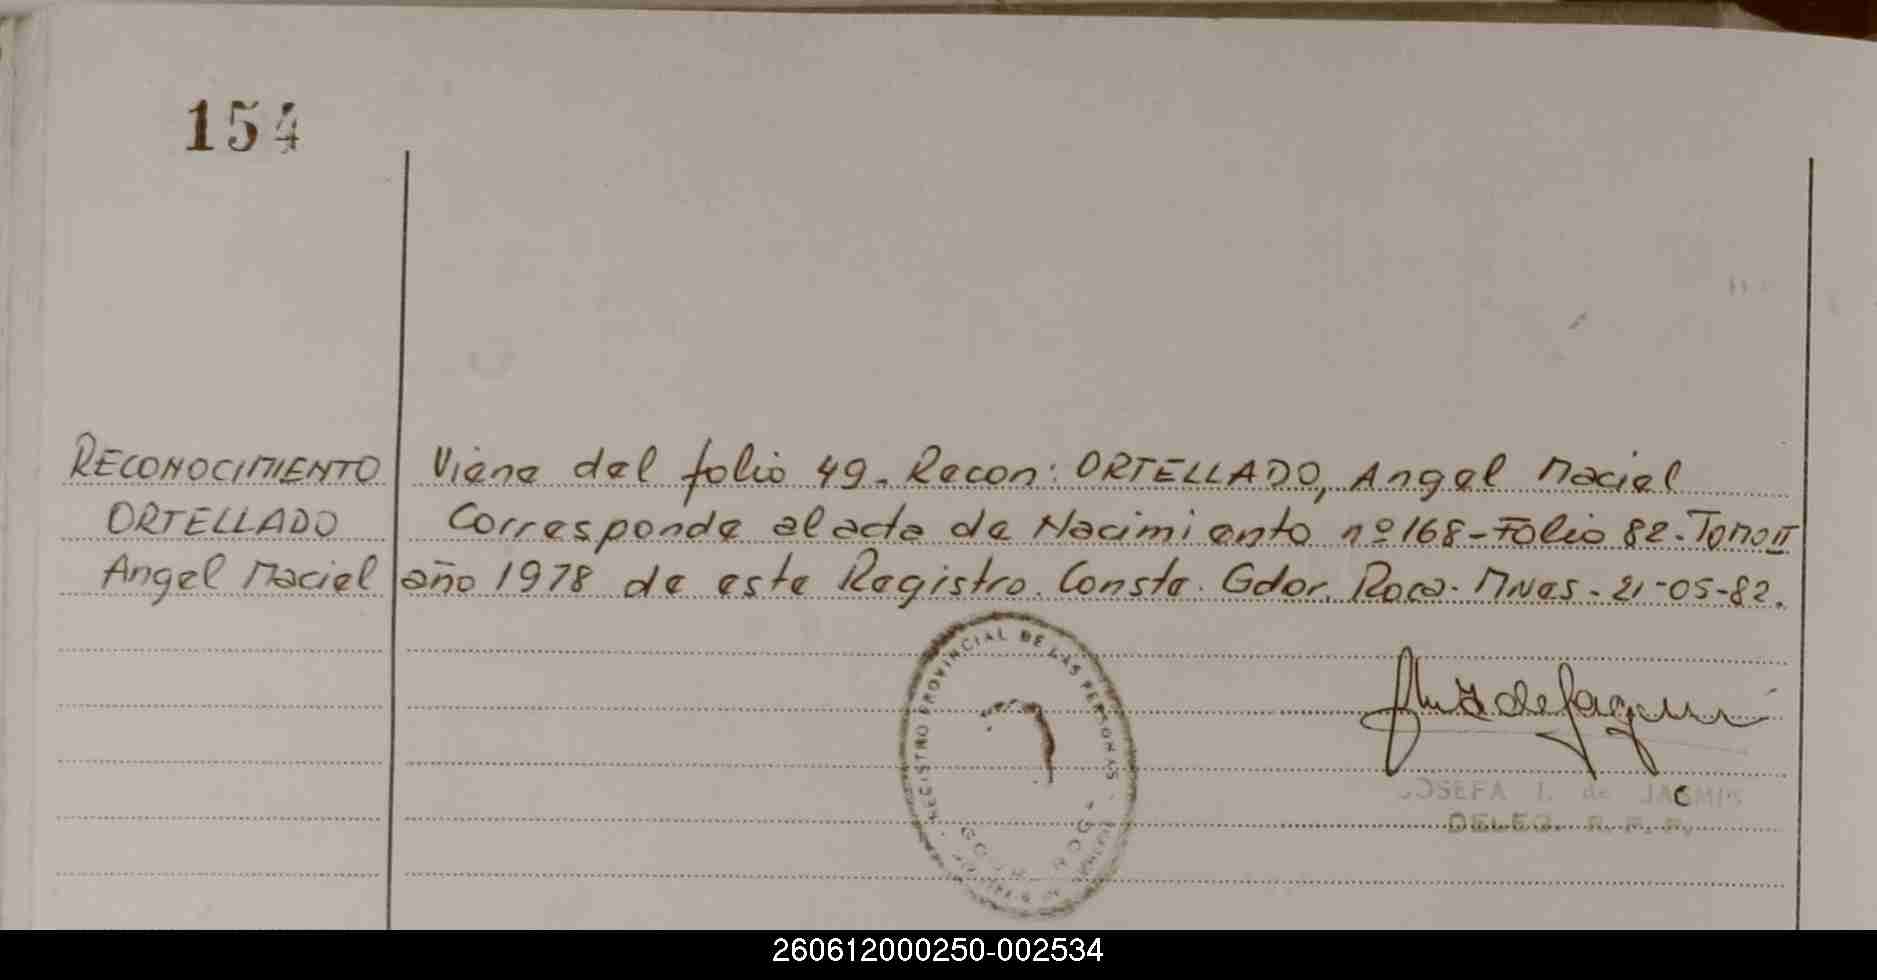 154
RECONOCIMIENTO
ORTELLADO
Angel Maciel
Viene del folio 49. Recon: ORTELLADO, Angel Maciel
Corresponde al acta de Nacimiento nº 168-Folio 82-Tomo II
año 1978 de este Registro. Conste. Gdor. Roca. Mnes. 21-05-82.
REGISTRO PROVINCIAL DE LAS PERSONAS
JOSEFA I. de
DELEG. R. P. P.
260612000250-002534